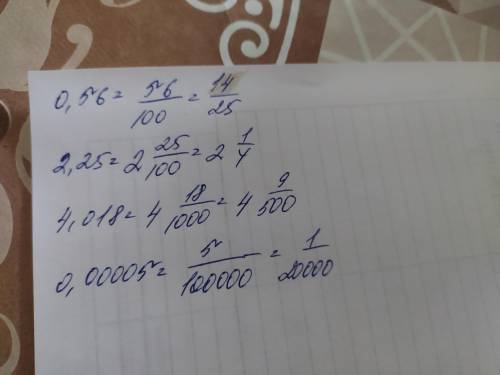 0,56 = 56/100 = 14/25
2,25 = 2 25/100 = 2 1/4
4,018 = 4 18/1000 = 4 9/500
0,00005 = 5/100000 = 1/20000